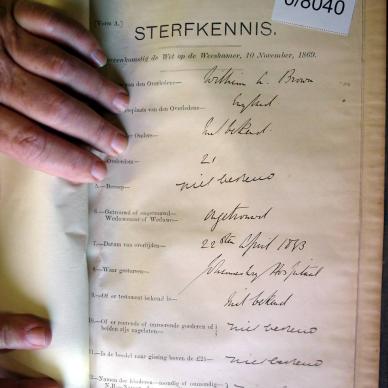 0/8040
[Vorm A.]
STERFKENNIS.
eenkomstig de Wet op de Weeskamer, 10 November, 1869.
van den Overledene—
William L. Brown
plaats van den Overledene—
England
Ouders—
Niet bekend.
Overledene—
21
5.—Beroep—
niet bekend
6.—Getrouwd of ongetrouwd,
Weduwenaar of Weduwe—
Ongetrouwd
7.—Datum van overlijden—
22sten April 1883
8.—Waar gestorven—
Hospitaal
9.—Of er testament bekend is—
Niet bekend
10.—Of er roerende of onroerende goederen of
beiden zijn nagelaten—
niet bekend
11.—Is de boedel naar gissing boven de £25—
niet bekend
12.—Namen der kinderen—mondig of onmondig